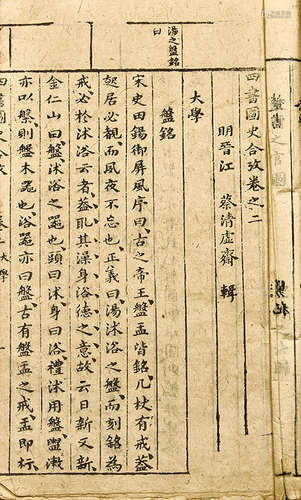 四書圖史合攷卷之二
明晉江 蔡清虛齋 輯
大學
盤銘
宋史田錫御屏風序曰古之帝王盤盂皆銘几杖有戒葢
起居必覩而夙夜不忘也正義曰湯沐浴之盤而刻銘為
戒必於沐浴云者葢取其澡身浴德之意故云日新又新
金仁山曰盤沐浴之器也頭曰沐身曰浴禮沐用盤盥漱
亦以槃則盤木器也浴器亦曰盤古有盤盂之戒盂即杅
湯之盤銘
曰
大學